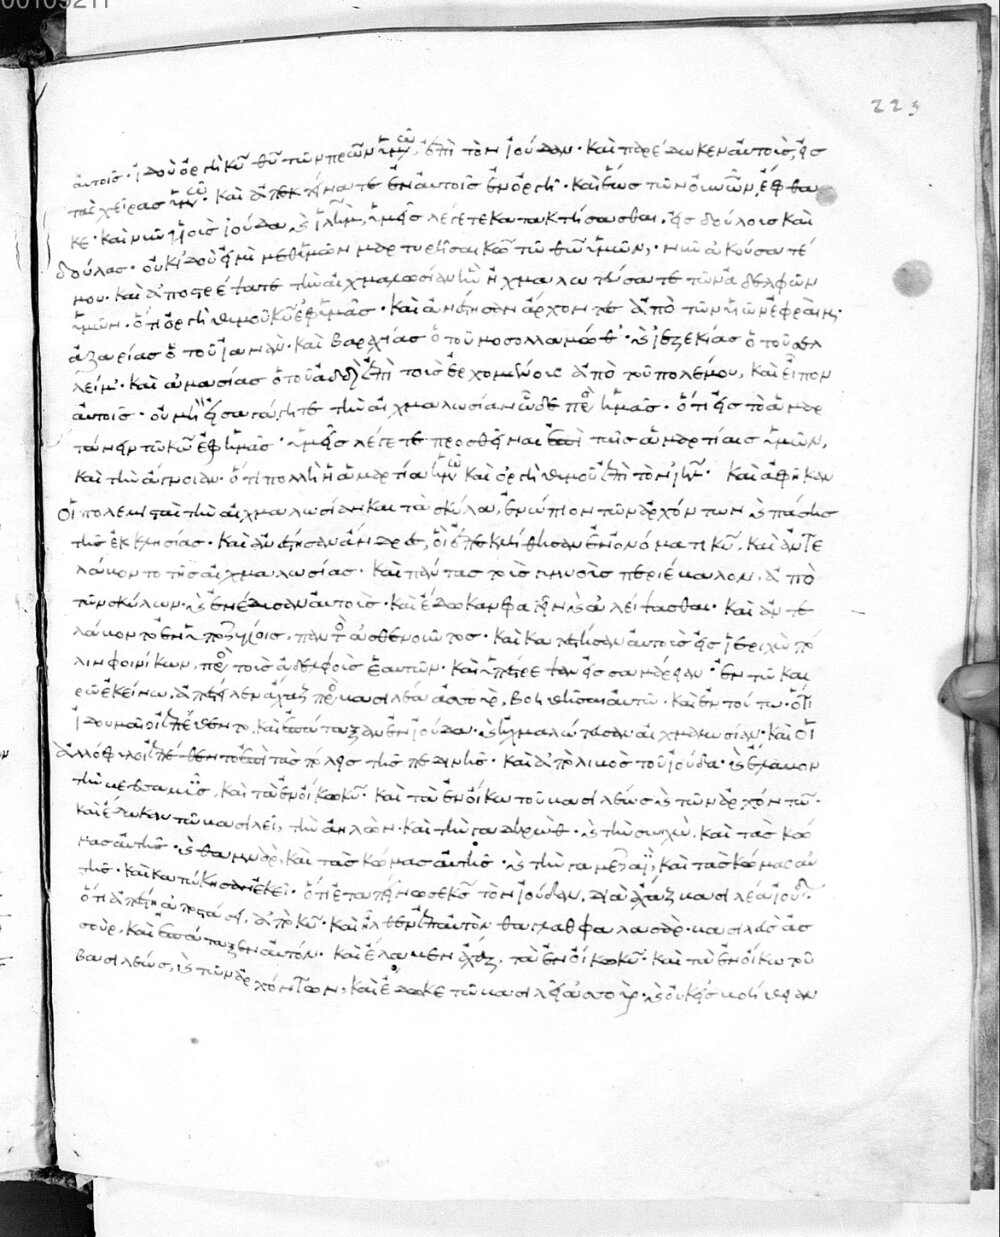 00109211
223
αὐτοῖς· ἰδοὺ ὀργὴ κῦ θῦ τῶν πρῶν ἡμῶν ἐπὶ τὸν ἰούδαν· καὶ παρέδωκεν αὐτοὺς εἰς
τὰς χεῖρας ὑμῶν· καὶ ἀπεκτείνατε ἐν αὐτοῖς ἐν ὀργῇ· καὶ ἕως τῶν οὐνῶν ἔφθα
κε· καὶ νῦν υἱοὺς ἰούδα, καὶ ἱλὴμ, ὑμεῖς λέγετε κατακτήσασθαι, εἰς δούλους καὶ
δούλας· οὐκ ἰδοὺ εἰμὶ μεθ' ὑμῶν μαρτυρῆσαι κῶ τῶ θῶ ὑμῶν· νῦν ἀκούσατέ
μου· καὶ ἀποστρέψατε τὴν αἰχμαλωσίαν ἣν ἠχμαλωτεύσατε τῶν ἀδελφῶν
ὑμῶν· ὅτι ὀργὴ θυμοῦ κῦ ἐφ' ὑμᾶς· καὶ ἀνέστησαν ἄρχοντες ἀπὸ τῶν υἱῶν ἐφραίμ·
ἀζαρίας ὁ τοῦ ἰωνὰν· καὶ βαραχίας ὁ τοῦ μοσολλαμώθ· καὶ ἐζεκίας ὁ τοῦ σελ
λείμ· καὶ ἀμασίας ὁ τοῦ ἀδδὶ ἐπὶ τοὺς ἐρχομένους ἀπὸ τοῦ πολέμου, καὶ εἶπον
αὐτοῖς· οὐ μὴ εἰσαγάγητε τὴν αἰχμαλωσίαν ὧδε πρὸς ἡμᾶς· ὅτι εἰς τὸ ἁμαρ
τάνειν τῶ κῶ ἐφ' ἡμᾶς· ὑμεῖς λέγετε προσθεῖναι ἐπὶ ταῖς ἁμαρτίαις ἡμῶν,
καὶ τὴν ἄγνοιαν· ὅτι πολλὴ ἡ ἁμαρτία ἡμῶν καὶ ὀργὴ θυμοῦ ἐπὶ τὸν ἰηλ· καὶ ἀφῆκαν
οἱ πολεμισταὶ τὴν αἰχμαλωσίαν καὶ τὰ σκῦλα, ἐνώπιον τῶν ἀρχόντων καὶ πάσης
τῆς ἐκκλησίας· καὶ ἀνέστησαν ἄνδρες, οἳ ἐπεκλήθησαν ἐν ὀνόματι κῦ, καὶ ἀντε
λάβοντο τῆς αἰχμαλωσίας· καὶ πάντας τοὺς γυμνοὺς περιέβαλον, ἀπὸ
τῶν σκύλων· καὶ ἐνέδυσαν αὐτοὺς· καὶ ἔδωκαν φαγεῖν καὶ ἀλείψασθαι· καὶ ἀντε
λάβοντο ἐν ὑποζυγίοις, παντὸς ἀσθενοῦντος· καὶ κατέστησαν αὐτοὺς εἰς ἱεριχὼ πό
λιν φοινίκων, πρὸς τοὺς ἀδελφοὺς ἑαυτῶν· καὶ ἐπέστρεψαν εἰς σαμάρειαν· ἐν τῶ και
ρῶ ἐκείνω, ἀπέστειλεν ἄχαζ πρὸς βασιλέα ἀσσοὺρ, βοηθῆσαι αὐτῶ· καὶ ἐν τούτω· ὅτι
ἰδουμαῖοι ἐπέθεντο, καὶ ἐπάταξαν ἐν ἰούδα· καὶ ἠχμαλώτευσαν αἰχμαλωσίαν· καὶ οἱ
ἀλλόφυλοι ἐπέθεντο ἐπὶ τὰς πόλεις τῆς πεδινῆς· καὶ ἀπὸ λιβὸς τοῦ ἰούδα· καὶ ἔλαβον
τὴν βεθσαμῦς, καὶ τὰ ἐν οἴκω κῦ· καὶ τὰ ἐν οἴκω τοῦ βασιλέως καὶ τῶν ἀρχόντων·
καὶ ἔδωκαν τῶ βασιλεῖ, τὴν αἰλὼν· καὶ τὴν γαδηρώθ· καὶ τὴν σωχὼ, καὶ τὰς κώ
μας αὐτῆς· καὶ θαμνὰ, καὶ τὰς κώμας αὐτῆς· καὶ τὴν γαμεζαὶ, καὶ τὰς κώμας αὐ
τῆς· καὶ κατώκησαν ἐκεῖ· ὅτι ἐταπείνωσε κς τὸν ἰούδαν, διὰ ἄχαζ βασιλέα ἰούδα·
ὅτι ἀπέστη ἀποστάσει, ἀπὸ κῦ· καὶ ἦλθεν ἐπ' αὐτὸν θαγλαθφαλασὰρ· βασιλεὺς ἀσ
σοὺρ, καὶ ἐπάταξεν αὐτόν· καὶ ἔλαβεν ἄχαζ, τὰ ἐν οἴκω κῦ· καὶ τὰ ἐν οἴκω τοῦ
βασιλέως, καὶ τῶν ἀρχόντων, καὶ ἔδωκε τῶ βασιλεῖ ἀσσοὺρ· καὶ οὐκ εἰς βοήθειαν